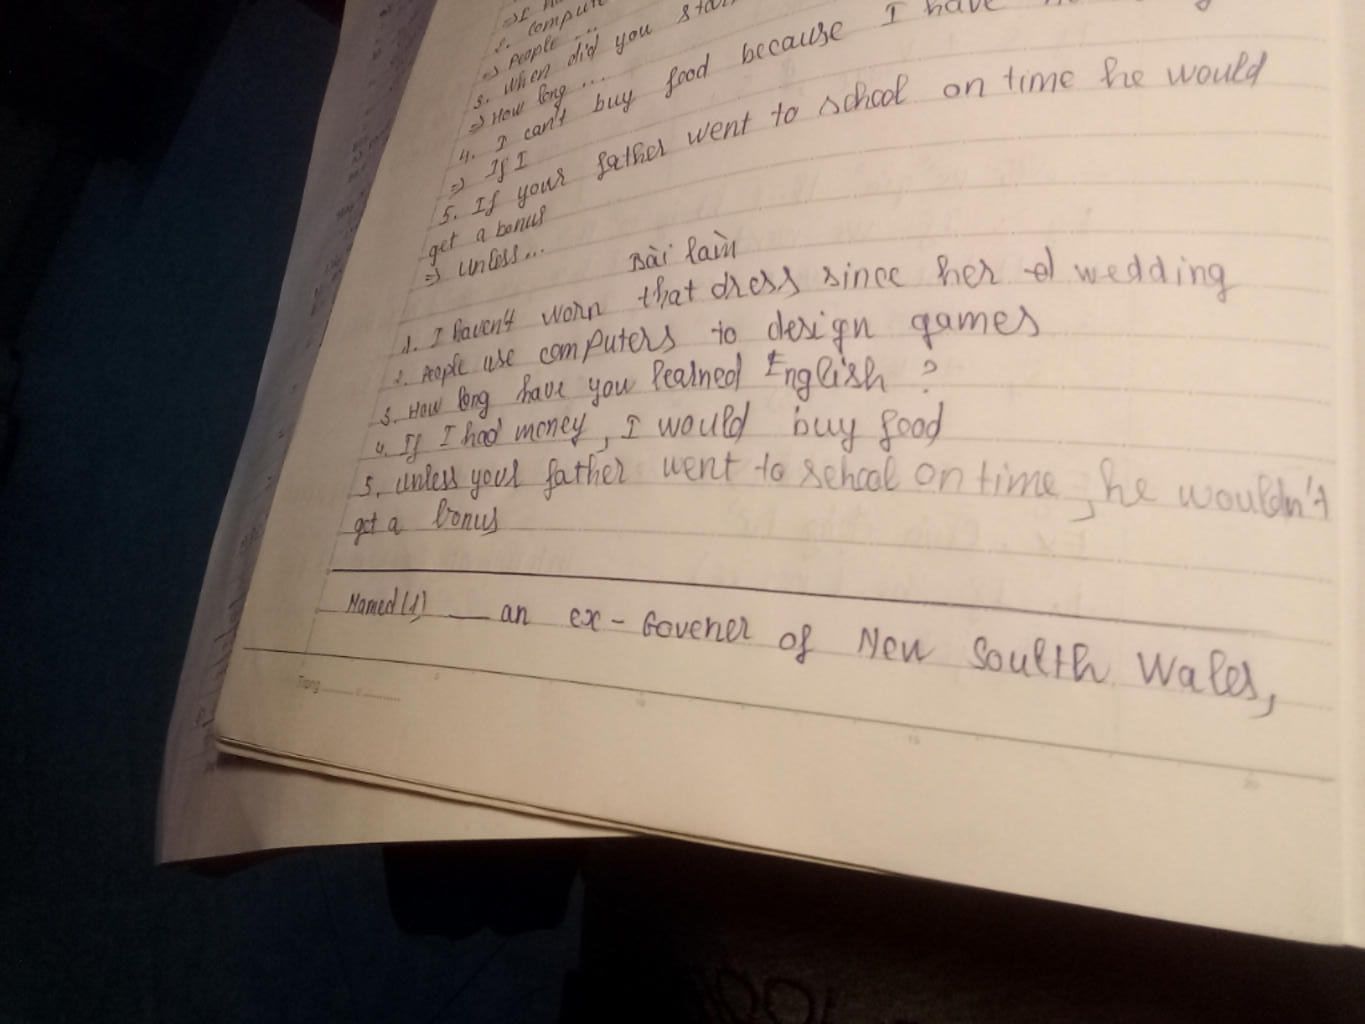 2. Comput
=> People ...
3. When did you star
=> How long ...
4. I can't buy food because I have
=> If I
5. If your father went to school on time he would
get a bonus
=> Unless...
Bài làm
1. I haven't worn that dress since her wedding
2. People use computers to design games
3. How long have you learned English ?
4. If I had money, I would buy food
5. unless your father went to school on time, he wouldn't
get a bonus
Named (1) ___ an ex - Govener of New Soulth Wales,
Trang